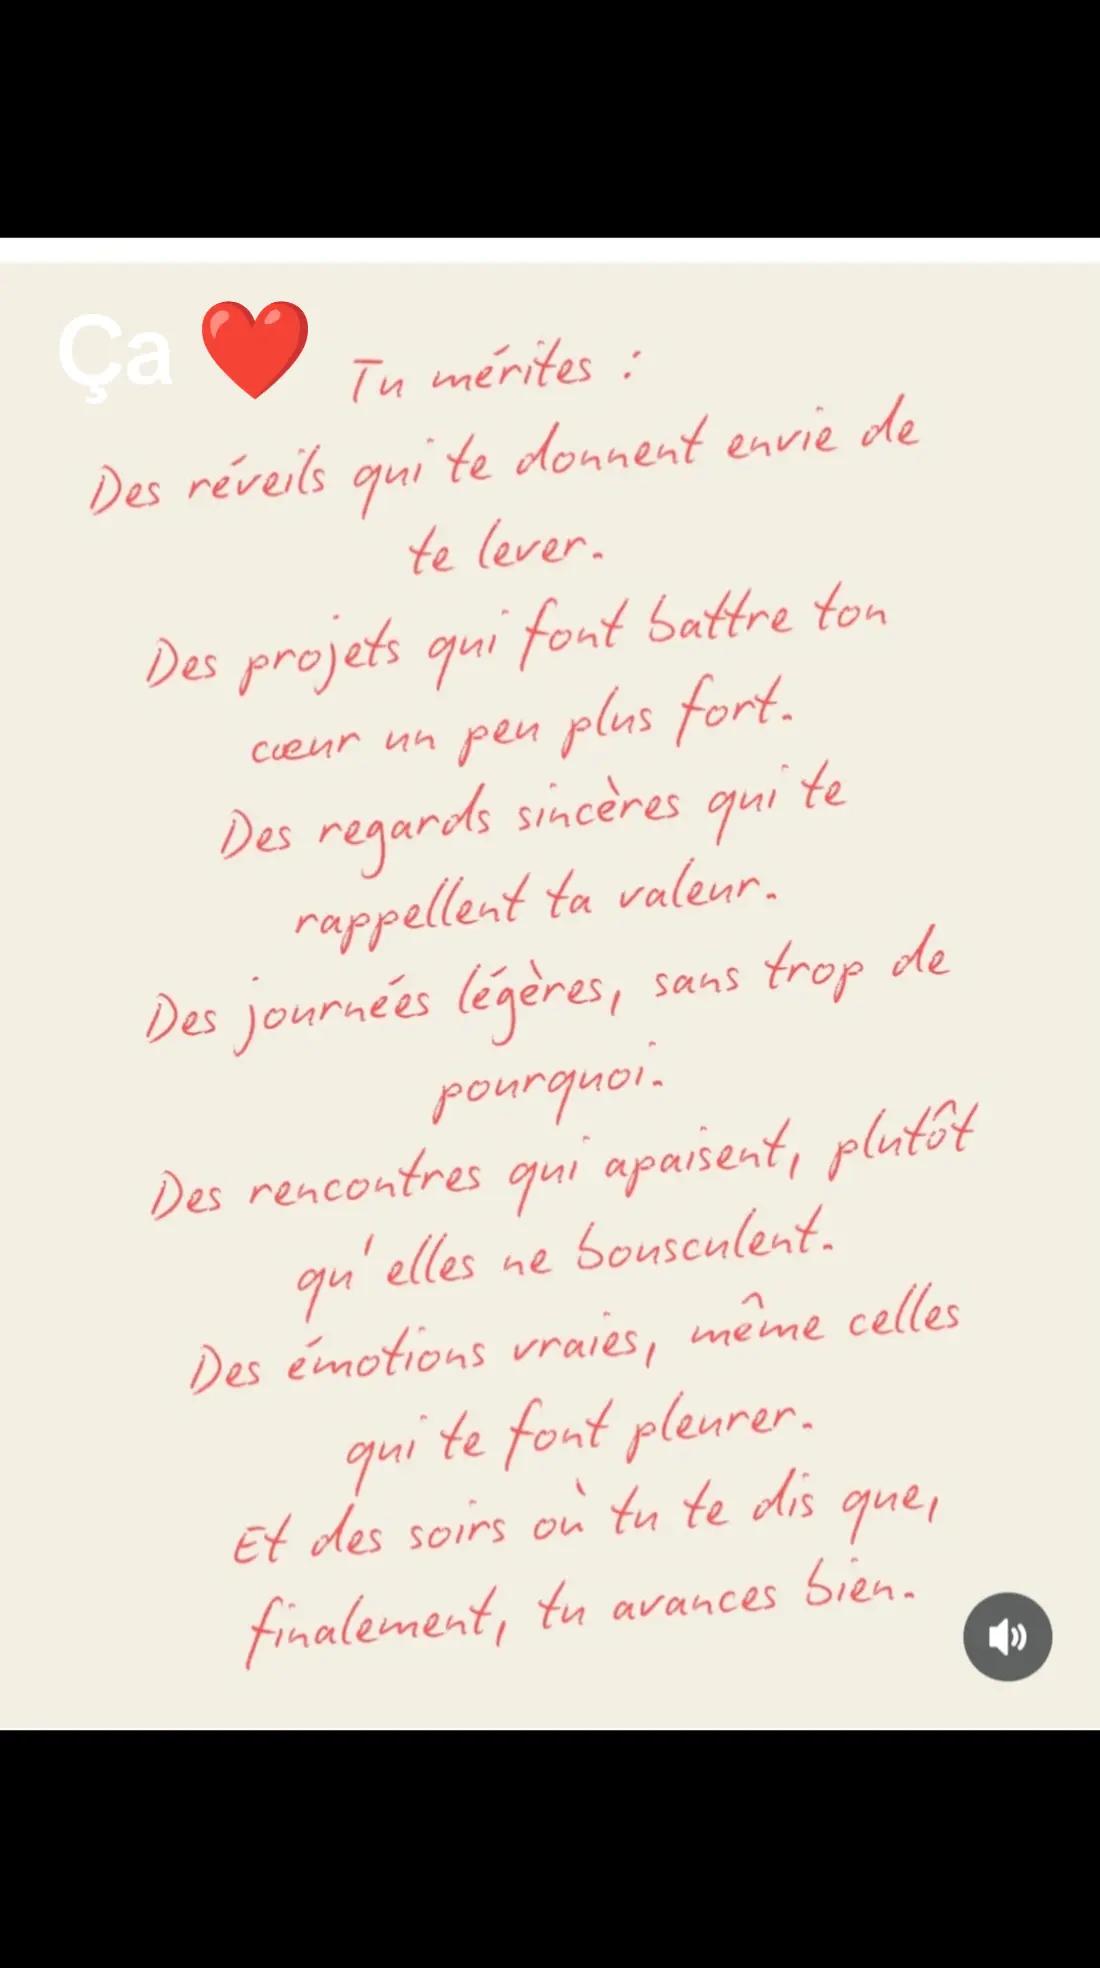 Ça ❤️
Tu mérites :
Des réveils qui te donnent envie de
te lever.
Des projets qui font battre ton
cœur un peu plus fort.
Des regards sincères qui te
rappellent ta valeur.
Des journées légères, sans trop de
pourquoi.
Des rencontres qui apaisent, plutôt
qu'elles ne bousculent.
Des émotions vraies, même celles
qui te font pleurer.
Et des soirs où tu te dis que,
finalement, tu avances bien.